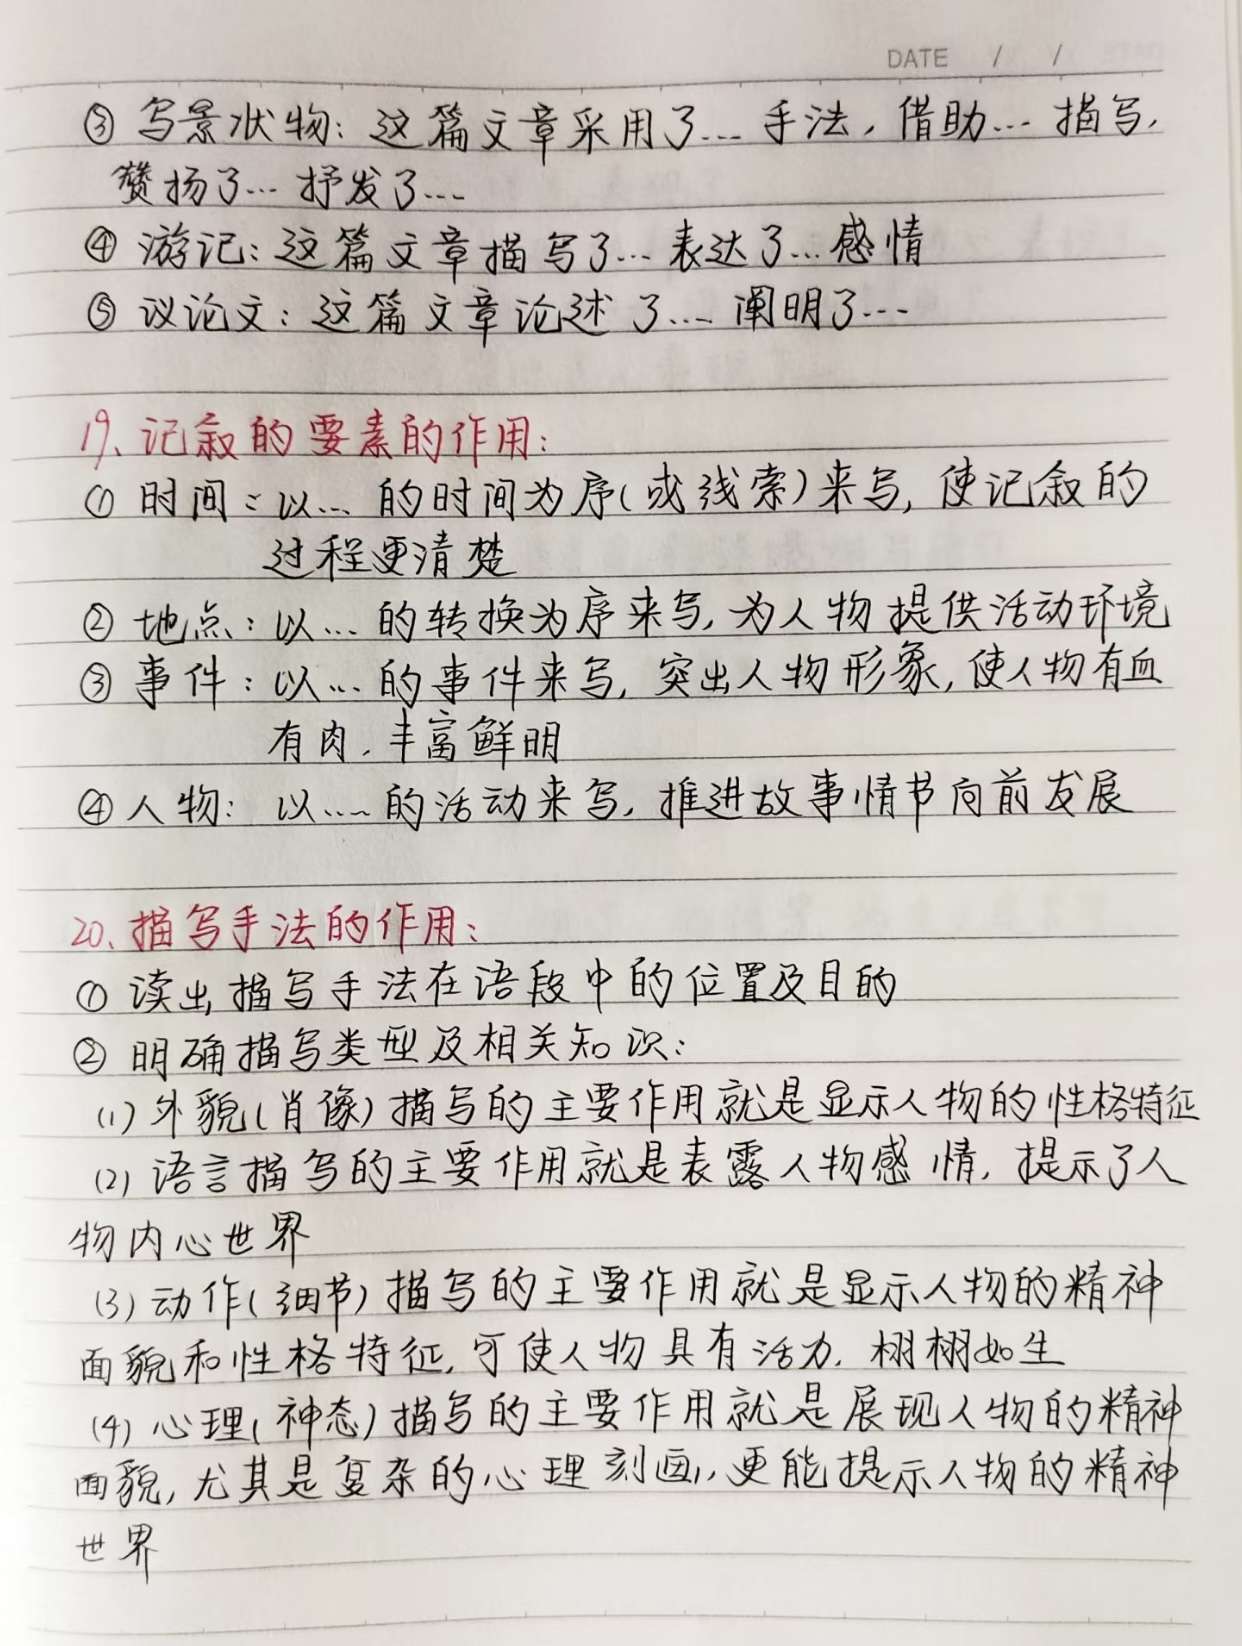 DATE / /
③ 写景状物：这篇文章采用了… 手法，借助… 描写，
赞扬了… 抒发了…
④ 游记：这篇文章描写了… 表达了…感情
⑤ 议论文：这篇文章论述了… 阐明了…
19、记叙的要素的作用：
① 时间：以… 的时间为序(或线索)来写，使记叙的
过程更清楚
② 地点：以… 的转换为序来写，为人物提供活动环境
③ 事件：以… 的事件来写，突出人物形象，使人物有血
有肉，丰富鲜明
④ 人物：以… 的活动来写，推进故事情节向前发展
20、描写手法的作用：
① 读出描写手法在语段中的位置及目的
② 明确描写类型及相关知识：
(1) 外貌(肖像)描写的主要作用就是显示人物的性格特征
(2) 语言描写的主要作用就是表露人物感情，提示了人
物内心世界
(3) 动作(细节)描写的主要作用就是显示人物的精神
面貌和性格特征，可使人物具有活力，栩栩如生
(4) 心理(神态)描写的主要作用就是展现人物的精神
面貌，尤其是复杂的心理刻画，更能提示人物的精神
世界